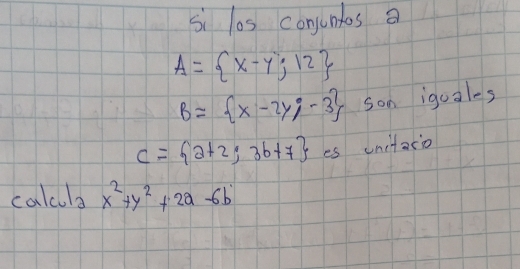 Si los conjuntos a
A = {x-y; 12}
B = {x-2y; -3} son iguales
C = {a+2; 3b+7} es unitario
calcula x²+y²+2a-6b